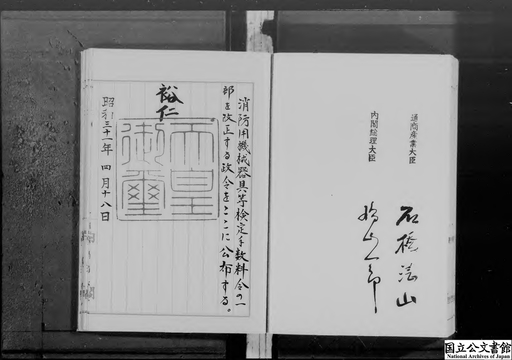 通商産業大臣
石橋湛山
内閣総理大臣
鳩山一郎
消防用機械器具等検定手数料令の一
部を改正する政令をここに公布する。
裕仁
天皇
御璽
昭和三十一年 四月十八日
国立公文書館
National Archives of Japan